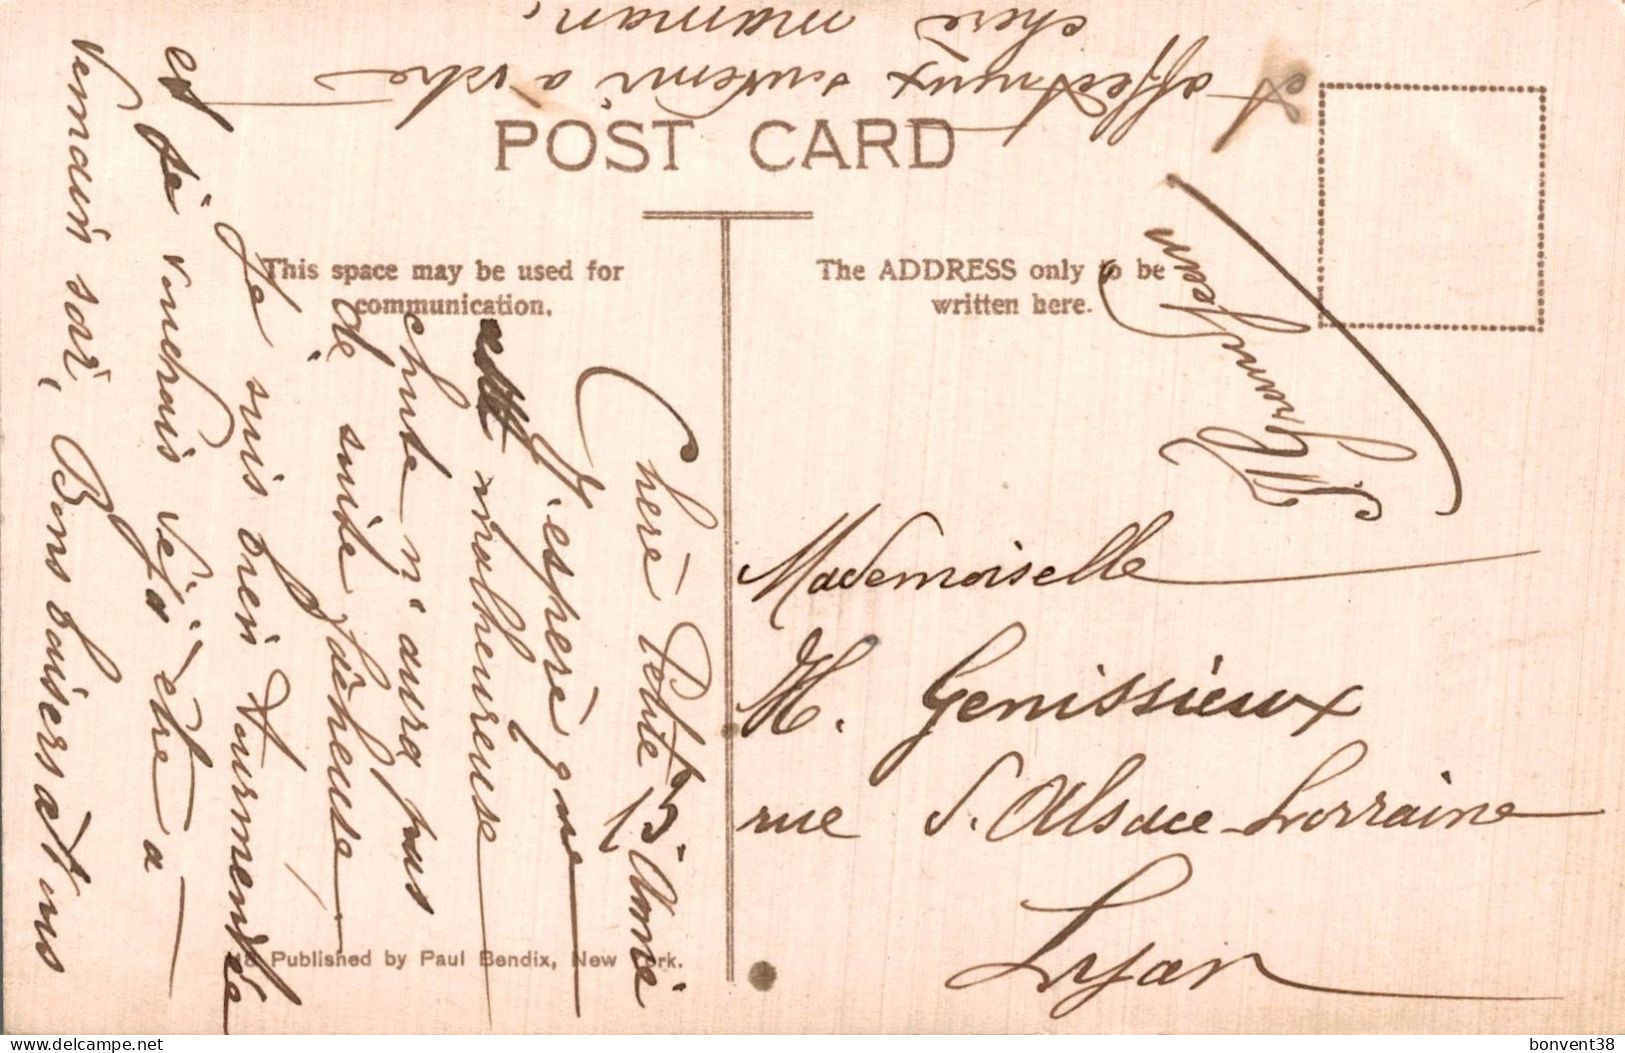 POST CARD
This space may be used for
communication.
The ADDRESS only to be
written here.
Chère Petite Amie
J'espère que
cette malheureuse
chute n'aura pas
de suite fâcheuse.
Je suis bien tourmentée
et je voudrais déjà être à
demain soir, Bons baisers à tous
et affectueux souvenir à votre
chère maman,
Mademoiselle
M. Genissieux
rue S. Alsace-Lorraine
Lyon
Published by Paul Bendix, New York.
bonvent38